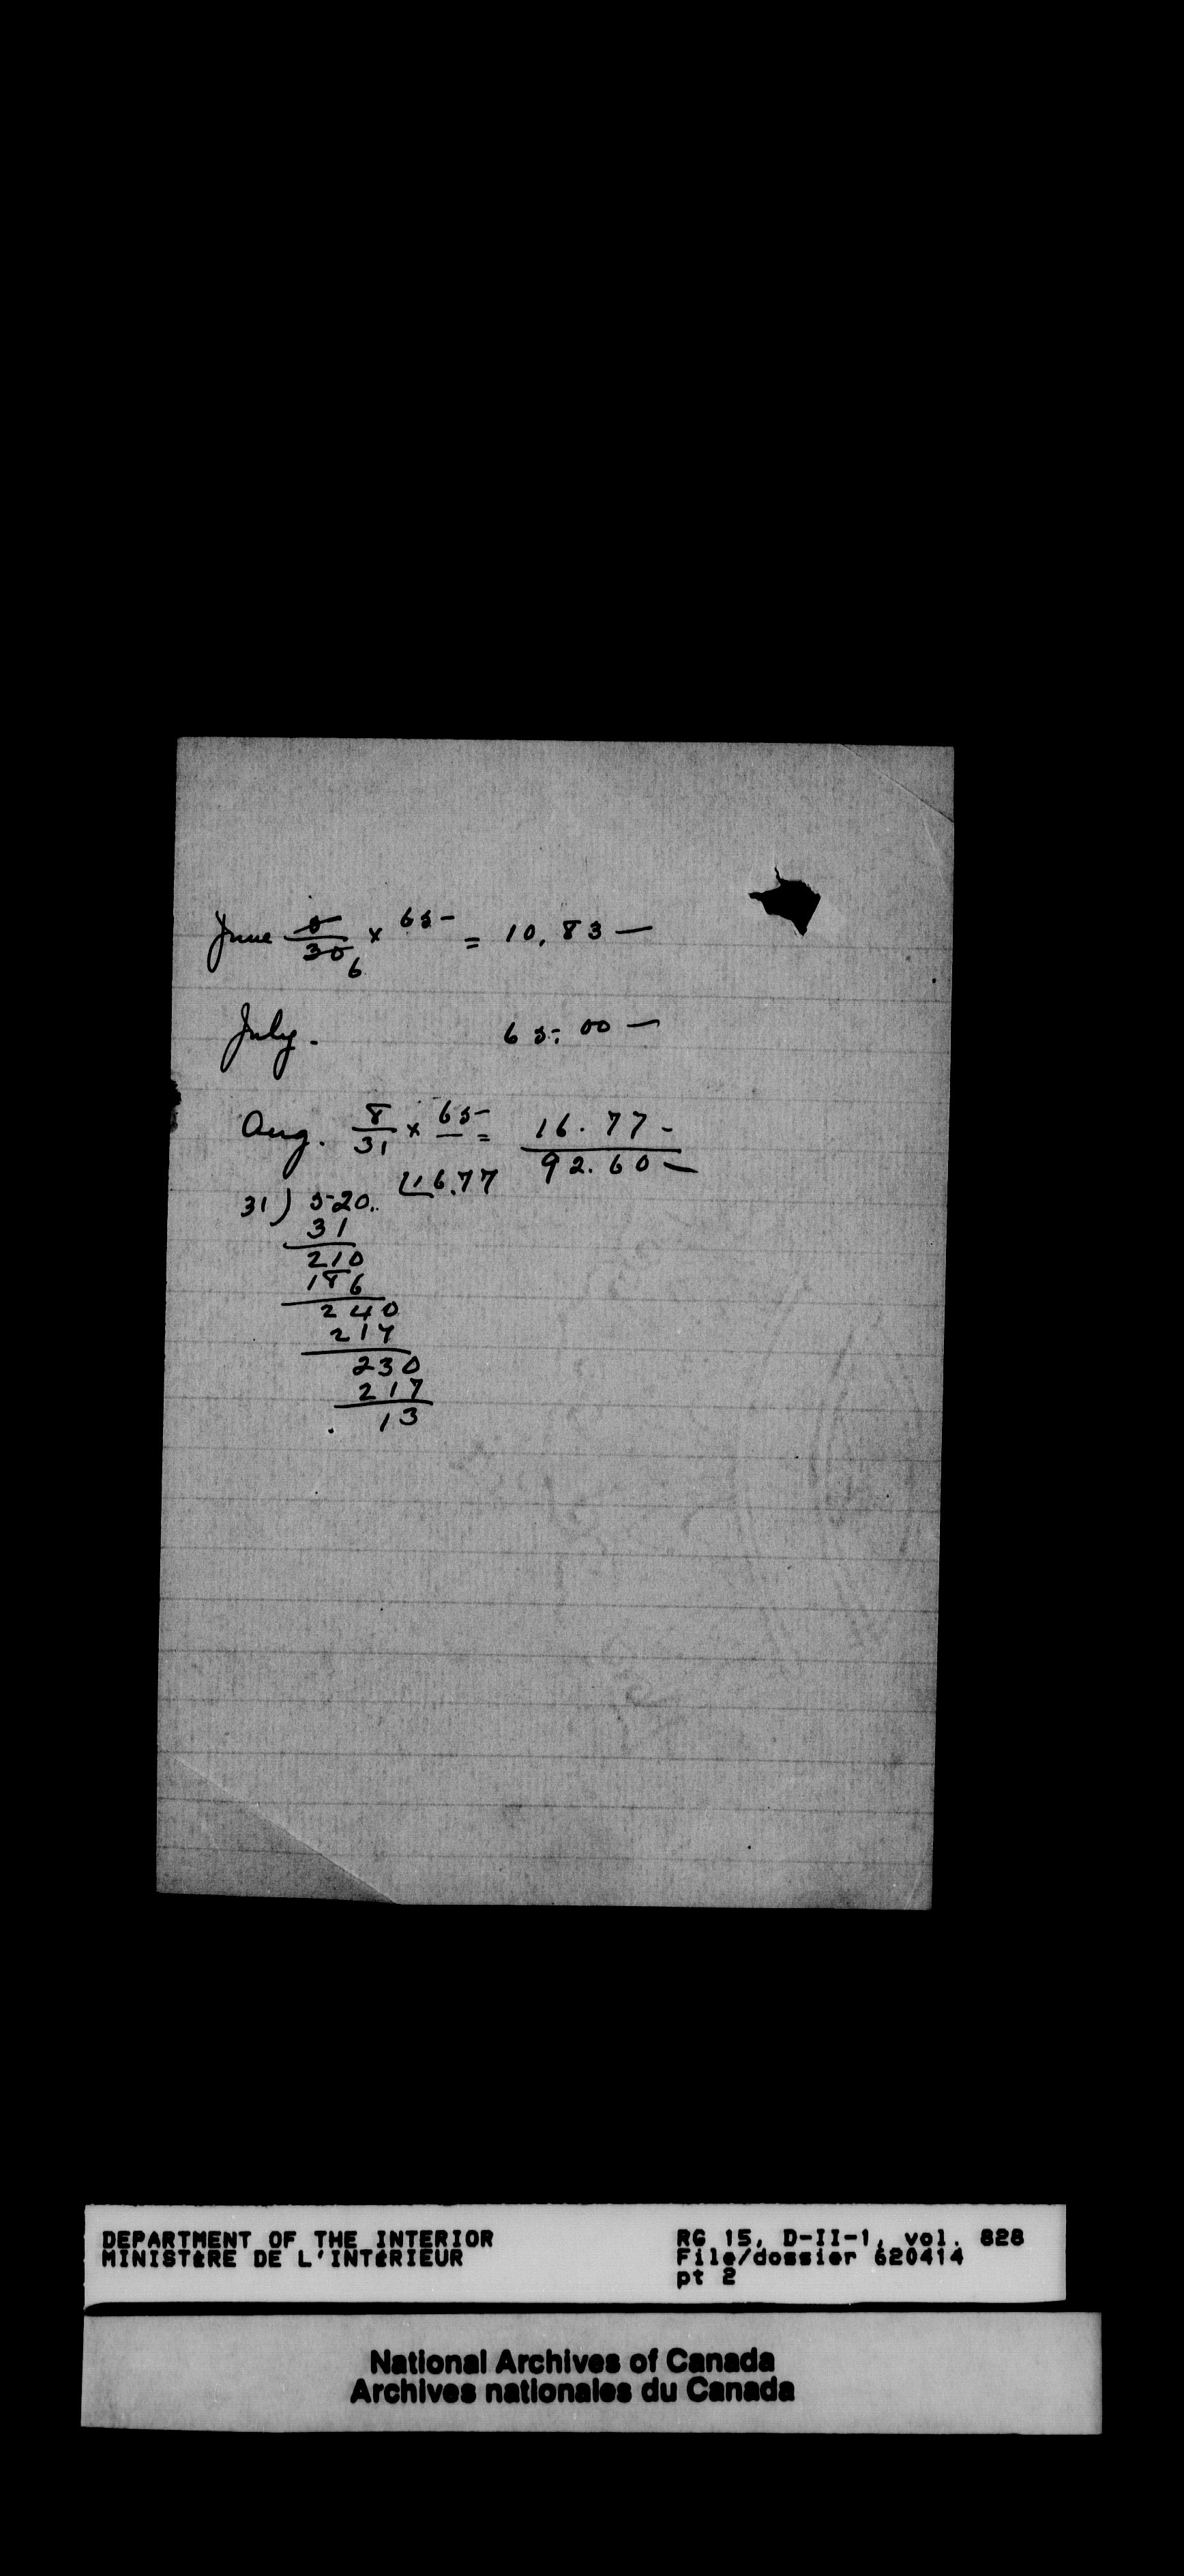 June 5/30 6 x 65 = 10.83 —
July. 65.00 —
Aug. 8/31 x 65 = 16.77 -
92.60 —
31 ) 520. 16.77
31
210
186
240
217
230
217
13
DEPARTMENT OF THE INTERIOR
MINISTÈRE DE L'INTÉRIEUR
RG 15, D-II-1, vol. 828
File/dossier 620414
pt 2
National Archives of Canada
Archives nationales du Canada